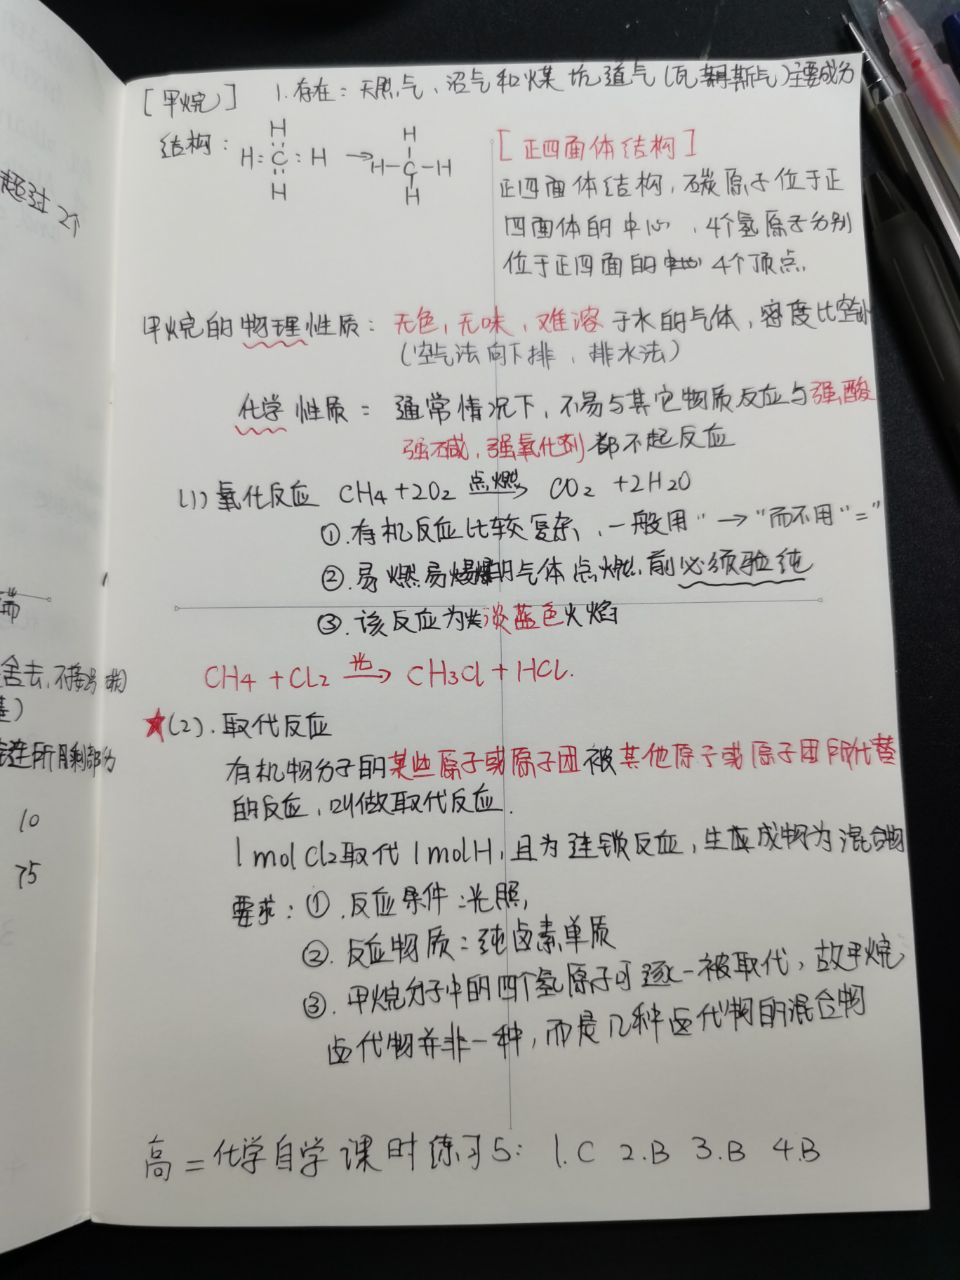 [甲烷] 1.存在：天然气、沼气和煤坑道气(瓦斯气)主要成分
结构：
H
H:C:H → H-C-H
H
[正四面体结构]
正四面体结构，碳原子位于正
四面体的中心，4个氢原子分别
位于正四面的4个顶点.
甲烷的物理性质：无色，无味，难溶于水的气体，密度比空小
(空气法向下排，排水法)
化学性质：通常情况下，不易与其它物质反应与强酸
强碱，强氧化剂都不起反应
(1)氧化反应 CH4+2O2 点燃→ CO2 +2H2O
①.有机反应比较复杂，一般用"→"而不用"="
②.易燃易爆的气体点燃前必须验纯
③.该反应为淡蓝色火焰
CH4 +Cl2 光→ CH3Cl+HCl.
★(2).取代反应
有机物分子的某些原子或原子团被其他原子或原子团所代替
的反应，叫做取代反应.
1molCl2取代1molH，且为连锁反应，生成物为混合物
要求：①.反应条件：光照，
②.反应物质：纯卤素单质
③.甲烷分子中的四个氢原子可逐一被取代，故甲烷
卤代物并非一种，而是几种卤代物的混合物
高二化学自学课时练习5: 1.C 2.B 3.B 4.B
超过2个
舍去，不
基)
连所剩部分
10
75